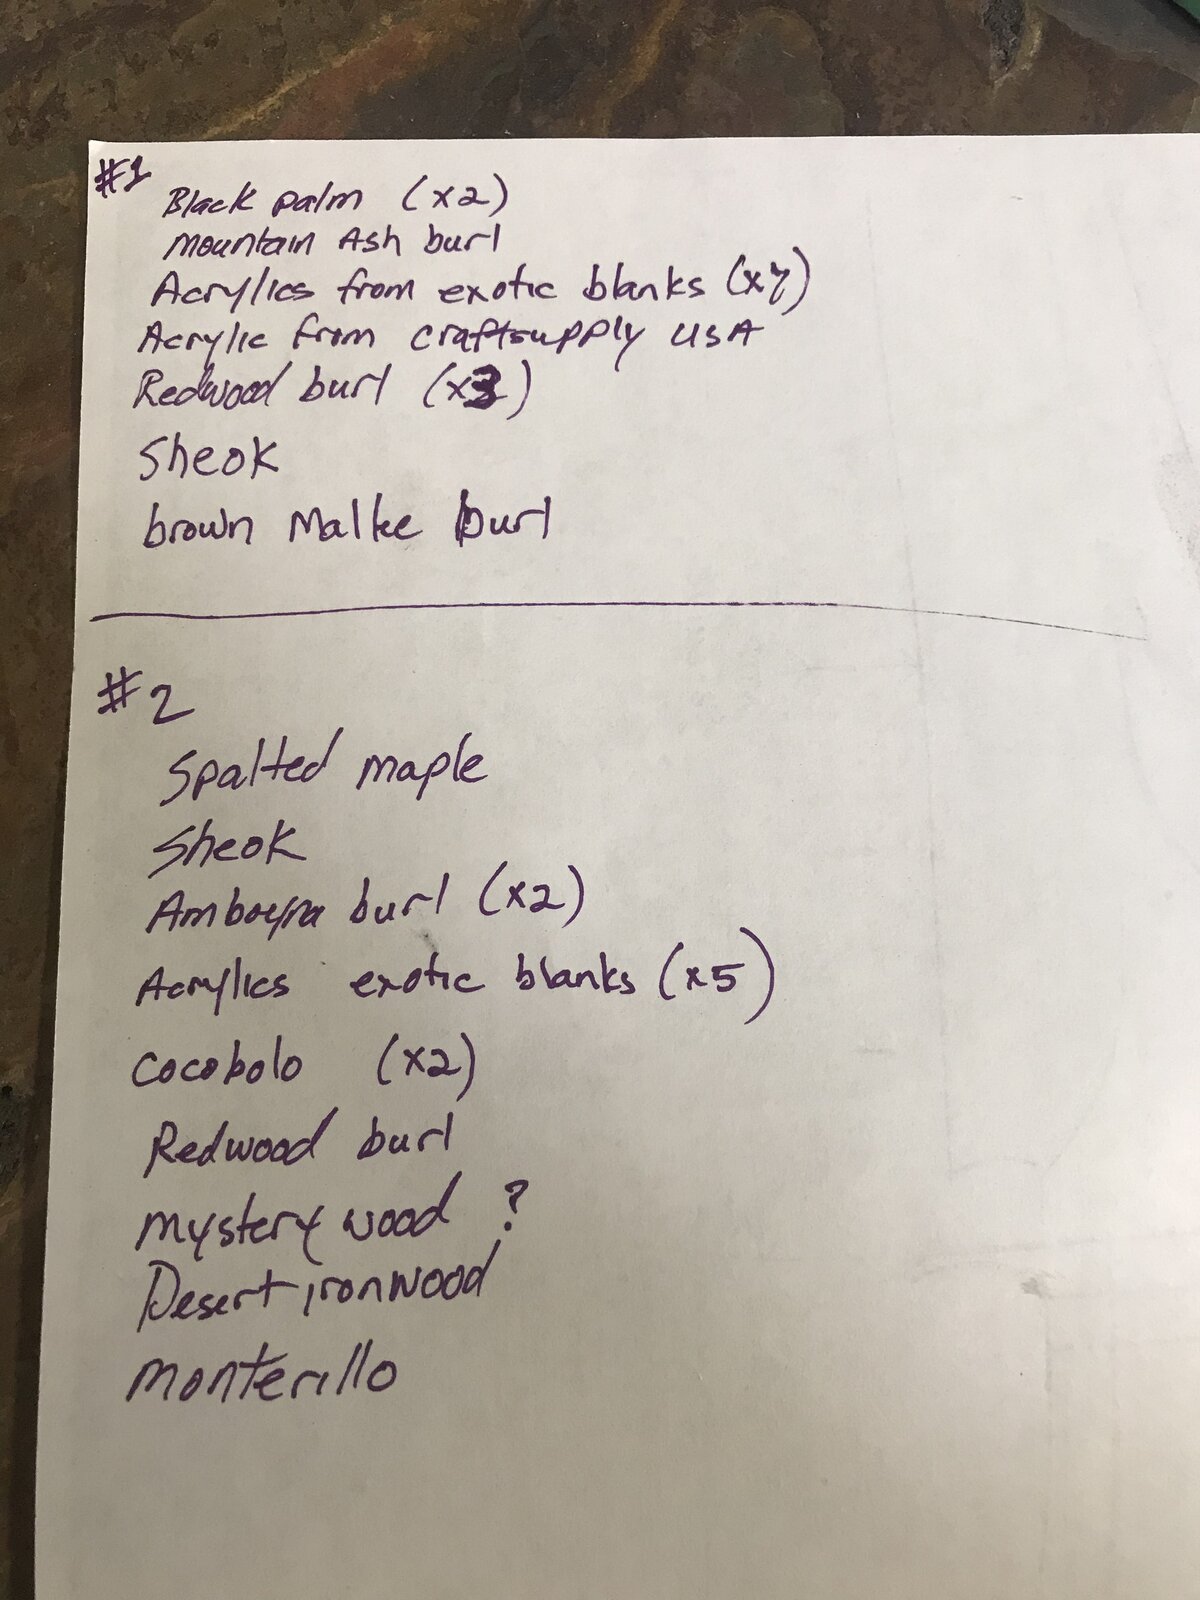 #1
Black palm (x2)
Mountain Ash burl
Acrylics from exotic blanks
Acrylic from craftsupply USA
Redwood burl (x3)
Sheok
brown Mallee burl
#2
Spalted maple
Sheok
Amboyna burl (x2)
Acrylics exotic blanks (x5)
Cocobolo (x2)
Redwood burl
mystery wood ?
Desert ironwood
Monterillo